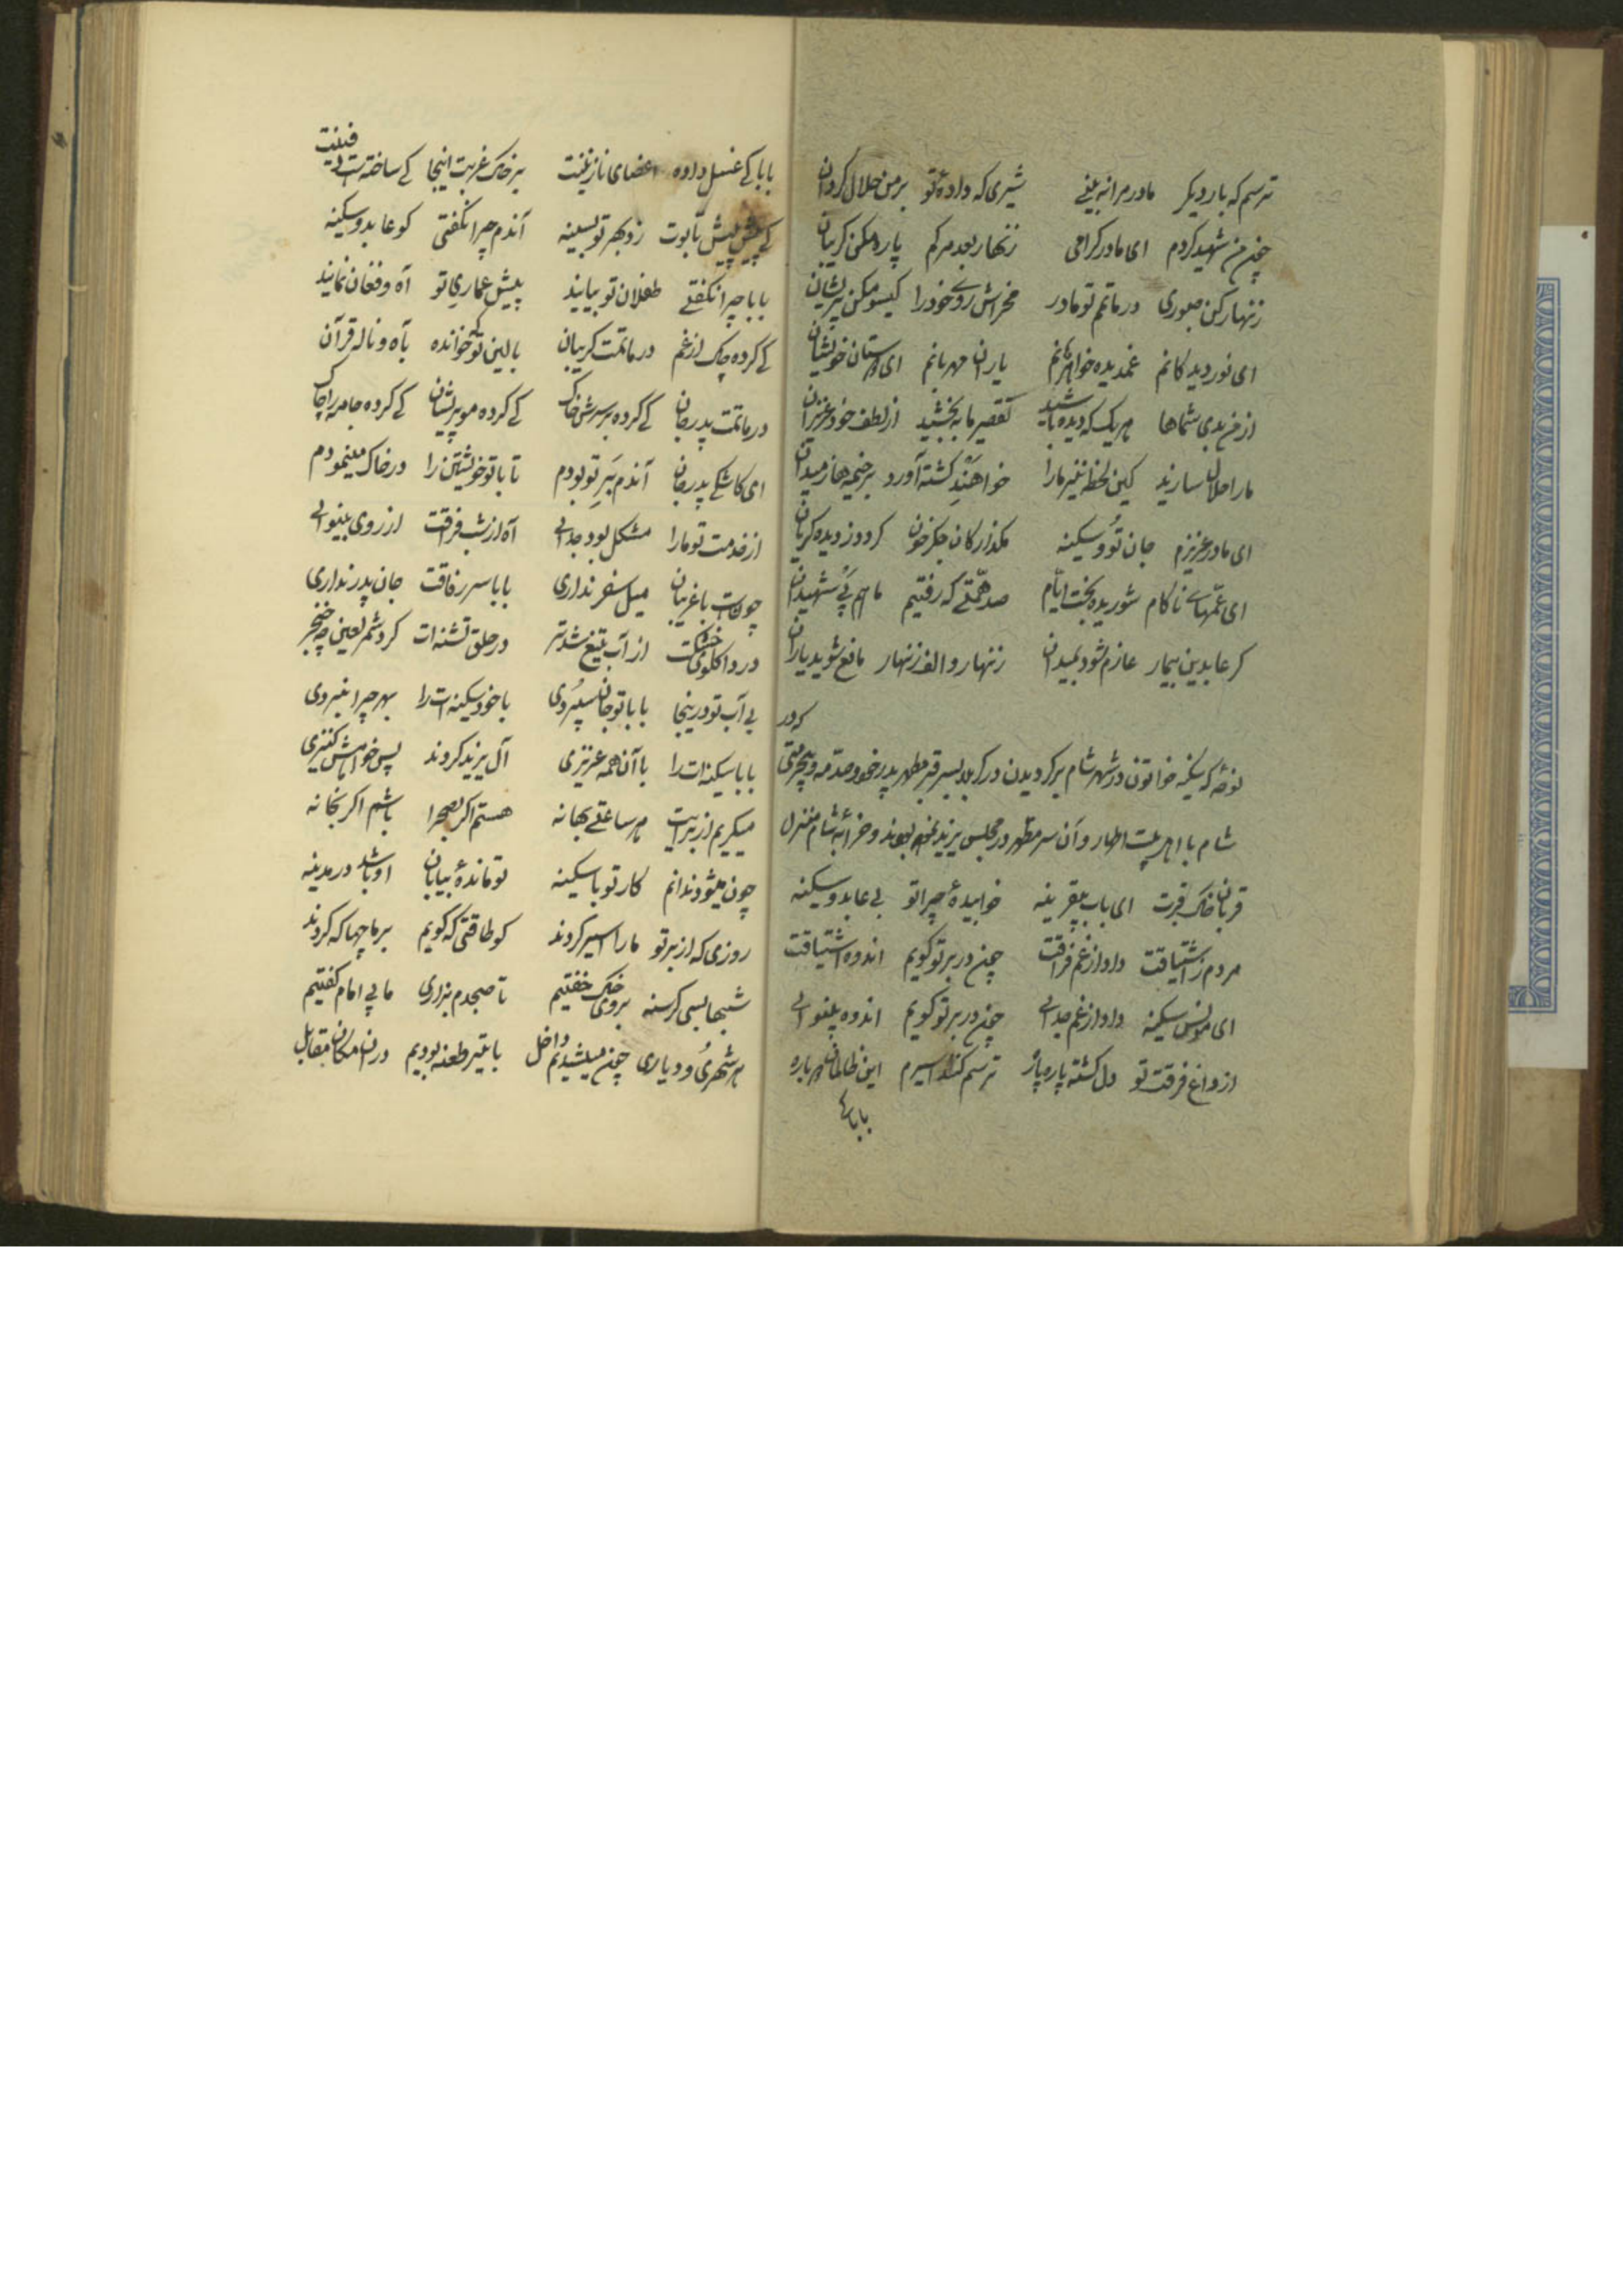 ترسم که بار دیگر مادر مرا نه بینی شیری که داده تو بر من حلال گردان
چون من شهید گردم ای مادر گرامی زنهار بعد مرگم پاره مکن گریبان
زنهار کن صبوری در ماتم تو مادر مخراش روی خود را گیسو مکن پریشان
ای نور دیدگانم غمدیده خواهرانم یاران مهربانم ای دوستان خویشان
از من بدی شماها هر یک که دیده باشید تقصیر ما به بخشید از لطف خود عزیزان
ما را حلال سازید کین لحظه نیز ما را خواهند کشته آورد بر خیمه‌ها ز میدان
ای مادر عزیزم جان تو و سکینه مگذار کان جگر خون گردد ز دیده گریان
ای عمهای ناکام شوریده بخت ایام صد همتی که رفتیم ما هم پی شهیدان
گر عابدین بیمار عازم شود بمیدان زنهار و الف زنهار مانع شوید یاران
نوحه که سکینه خواتون در شهر شام برگردیدن در کربلا بسر قبر مطهر پدر خود و صدمه و بیحرمتی که در
شام با اهل بیت اطهار و آن سر مطهر در مجلس یزید نموده بودند و خرابه شام منزل
قربان خاک قبرت ای باب بیقرینه خوابیده چرا تو بی عابد و سکینه
مردم ز اشتیاقت داد از غم فراقت چون در بر تو گویم اندوه اشتیاقت
ای مونس سکینه داد از غم جدائی چون در بر تو گویم اندوه بینوائی
از داغ فرقت تو دل گشته پاره پاره ترسم کنند اسیرم این ظالمان دوباره
بابا که
بابا کی غسل داده اعضای نازنینت بر خاک غربت اینجا کی ساخته است دفینت
کی پیش پیش تابوت زد بهر تو بسینه آندم چرا نگفتی کو عابد و سکینه
بابا چرا نگفتی طفلان تو بیایند پیش عماری تو آه و فغان نمایند
کی کرده چاک از غم در ماتمت گریبان بالین تو که خوانده با آه و ناله قرآن
در ماتمت پدر جان کی کرده بر سرش خاک کی کرده مو پریشان کی کرده جامه را چاک
ای کاشکی پدر جان آندم بر تو بودم تا با تو خویشتن را در خاک مینمودم
از خدمت تو ما را مشکل بود جدائی آه از شب فراقت از روی بینوائی
چونست با غریبان میل سفر نداری بابا سر رفاقت جان پدر نداری
دردا گلوی خشکت از آب تیغ شد تر در حلق تشنه‌ات کرد شمر لعین چه خنجر
بی آب تو در اینجا بابا تو جان سپردی با خود سکینه‌ات را بهر چرا نبردی
بابا سکینه‌ات را با آن همه عزیزی آل یزید کردند پس خواهش کنیزی
میگریم از برایت هر ساعتی بهانه هستم اگر بصحرا باشم اگر بخانه
چون میشود ندانم کار تو با سکینه تو مانده بیابان او باشد در مدینه
روزی که از بر تو ما را اسیر کردند کو طاقتی که گویم بر ما چها که کردند
شبها بسی گرسنه بروی خاک خفتیم تا صبحدم بزاری ما بی امام گفتیم
هر شهری و دیاری چون میشدیم داخل با تیر طعنه بودیم در آن مکان مقابل